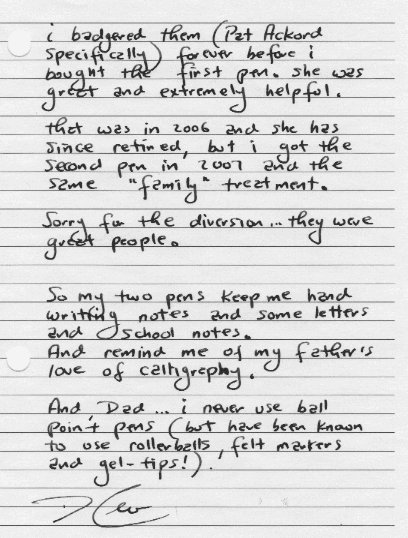 i badgered them (Pat Ackord
specifically) forever before i
bought the first pen. she was
great and extremely helpful.
that was in 2006 and she has
since retired, but i got the
second pen in 2007 and the
same "family" treatment.
Sorry for the diversion... they were
great people.
So my two pens keep me hand
writing notes and some letters
and school notes.
And remind me of my father's
love of calligraphy.
And, Dad... i never use ball
point pens (but have been known
to use rollerballs, felt markers
and gel-tips!).